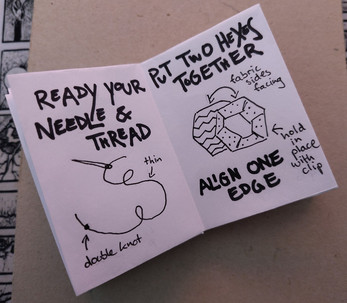 READY YOUR
NEEDLE &
THREAD
thin
double knot
PUT TWO HEXOS
TOGETHER
fabric
sides
facing
hold
in place
with
clip
ALIGN ONE
EDGE